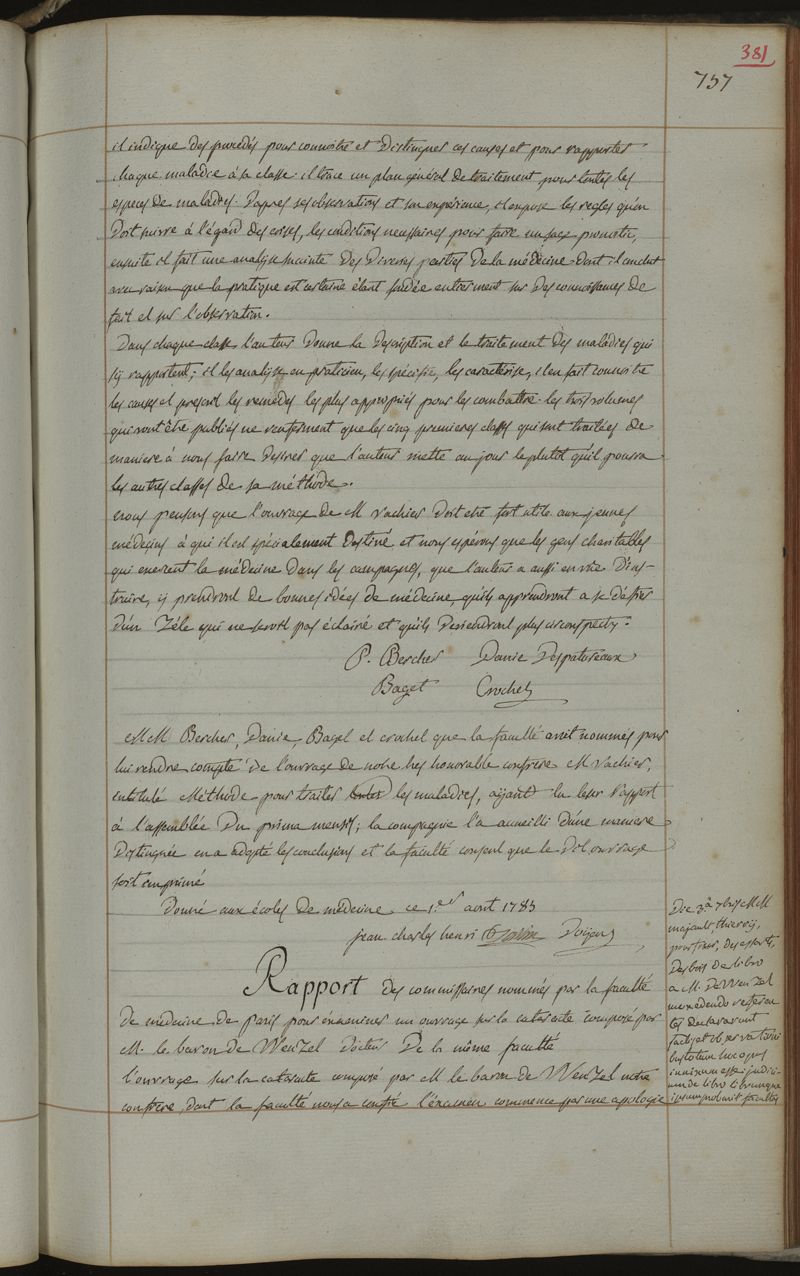 381
757
il indique des procedés pour connoitre et distinguer ces causes et pour rapporter
chaque maladie à sa classe. il trace un plan général de traitement pour toutes les
especes de maladies. d'apres ses observations et son experience, il expose les regles qu'on
doit suivre à l'égard des crises, les conditions necessaires pour faire un sage pronostic,
ensuite il fait une analyse succinte des diverses parties de la médecine dont il conclut
avec raison que la pratique est certaine étant fondée entierement sur des connoissances de
fait et sur l'observation.
Dans chaque classe l'auteur donne la description et le traitement des maladies qui
s'y rapportent; il les analyse en praticien, les spécifie, les caractérise, il en fait connoitre
les causes et prescrit les remedes les plus appropriés pour les combattre. les trois volumes
qui vont être publiés ne renferment que les cinq premieres classes qui sont traitées de
maniere à nous faire desirer que l'auteur mette au jour le plutôt qu'il pourra
les autres classes de sa méthode.
nous pensons que l'ouvrage de M Vachier doit etre fort utile aux jeunes
médecins à qui il est spécialement destiné et nous espérons que les gens charitables
qui exercent la médecine dans les campagnes, que l'auteur a aussi en vüe d'ins-
truire, y prendront de bonnes idées de médecine, qu'ils apprendront a se défier
d'un zéle qui ne seroit pas éclairé et qu'ils deviendront plus circonspects.
P. Bercher Danie Despatureaux
Baget Crochet
MM Bercher, Danie, Baget et crochet que la faculté avoit nommés pour
lui rendre compte de l'ouvrage de notre tres honorable confrere M Vachier,
intitulé Méthode pour traiter toutes les maladies, aÿant lu leur rapport
à l'assemblée du prima mensis; la compagnie l'a accueilli d'une maniere
distinguée en a adopté les conclusions et la faculté consent que le dit ouvrage
soit imprimé
Donné aux écoles de medecine ce 1.er aout 1785
jean charles henri Doÿen
Rapport des commissaires nommés par la faculté
de médecine de paris pour éxaminer un ouvrage sur la cataracte composé par
M. le baron de Wenzel docteur de la même faculté
l'ouvrage sur la cataracte composé par M. le baron de Wenzel notre
confrere, dont la faculté nous a confié l'éxamen commence par une apologie
Die 3.a 7bris MM
majault, thierry,
Des essartz,
Desbois de libro
a M. De Wenzel
mox edendo
declaravunt